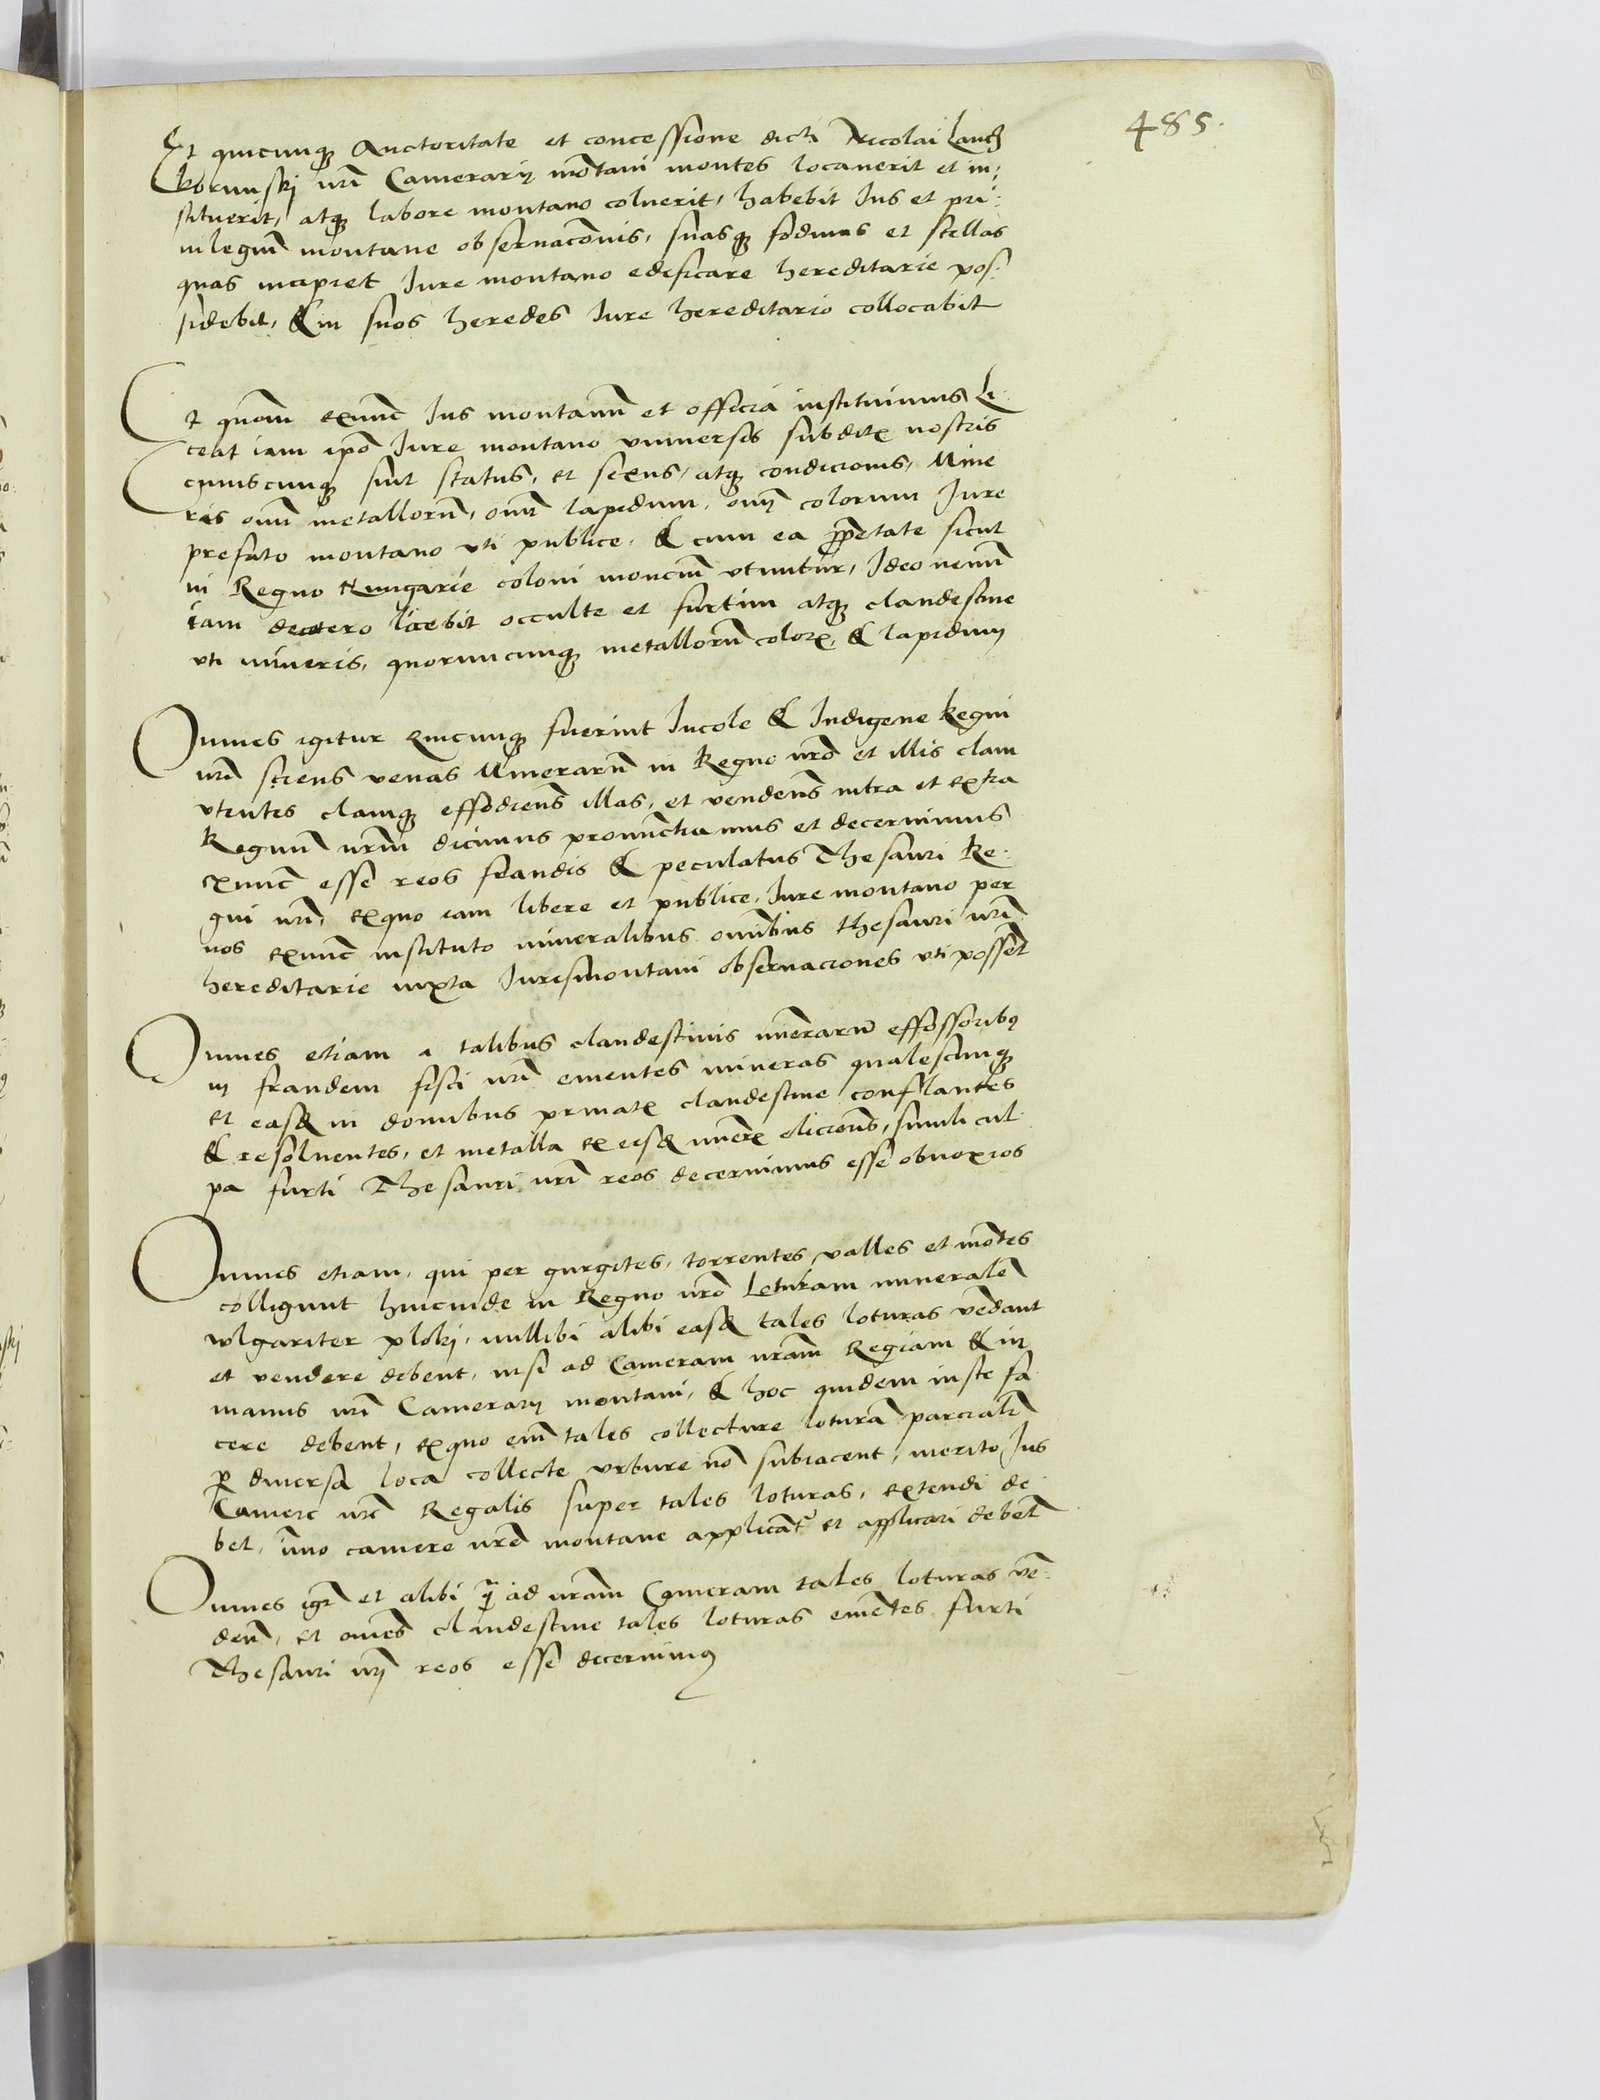 485.
Et quicunq auctoritate et concessione dicti Nicolai Lancz
korunskj nri Camerarij motani montes locauerit et in:
stituerit, atq labore montano coluerit, habebit Ius et pri:
uilegiu montane obseruacois, suasq fodinas et stellas
quas incipiet Iure montano edificare hereditarie pos:
sidebit, & in suos heredes Iure hereditario collocabit
Et quoniam exnunc Ius montanu et officia instituimus Li:
ceat iam ipo Iure montano vniuersis subditis nostris
cuiuscunq sint status, et sexus, atq condicionis, Mine
ris oim metalloru, oim lapidum, oim colorum Iure
prefato montano vti publice, & cum ea ppetate sicut
in Regno Hungarie coloni monciu vtuntur, Ideo nemini
iam decetero licebit occulte et furtim atq clandestine
vti mineris, quorumcunq metalloru colorum & lapidum
Omnes igitur quicunq fuerint Incole & Indigene Regni
nri sciens venas Mineraru in Regno nro et illis clam
vtentes clamq effodiens illas, et vendens intra et extra
Regnum nrm dicimus pronunctiamus et decernimus
exnunc esse reos fraudis & peculatus Thesauri Re:
gni nri, exquo iam libere et publice, Iure montano per
nos exnunc instituto mineralibus omibus thesauri nri
hereditarie iuxta Iurismontani obseruaciones vti possent
Omnes etiam a talibus clandestinis mineraru effossoribus
in fraudem fisci nri ementes mineras qualescunq
et easd in domibus priuatis clandestine conflantes
& resoluentes, et metalla ex eisd mineris eliciens, simili cul
pa furti Thesauri nri reos decernimus esse obnoxios
Omnes etiam, qui per gurgites, torrentes valles et motes
colligunt hincinde in Regno nro Loturam mineralem
wlgariter plokj, nullibi alibi easd tales loturas vedant
et vendere debent, nisi ad Cameram nram Regiam & in
manus nri Camerarij montani, & hoc quidem iuste fa
cere debent, exquo eni tales collecture loturam parcialiter
p diuersa loca collecte vrbure no subiacent, merito Ius
Camere nre Regalis super tales loturas, extendi de
bet, imo camere nre montane applicatur et applicari debet
Omnes igitur et alibi q ad nram Cameram tales loturas ven
dent, et omes clandestine tales loturas ementes furti
Thesauri nri reos esse decernimus